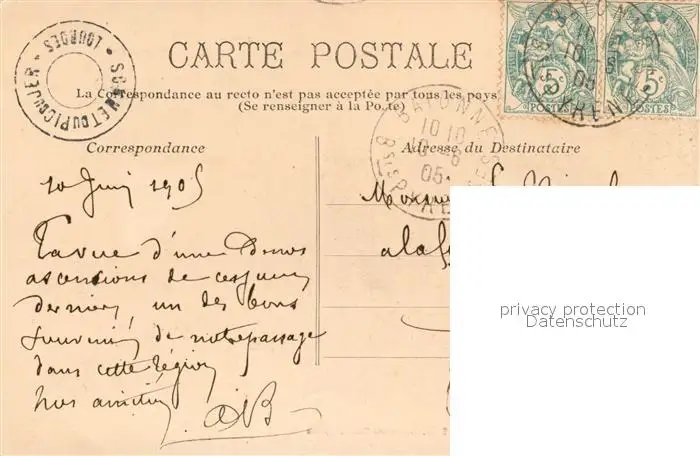 CARTE POSTALE
La Correspondance au recto n'est pas acceptée par tous les pays
(Se renseigner à la Poste)
SOMMET DU PIC DU JER
LOURDES
BAYONNE
10 10
10 - 6
05
BSES PYRENEES
5c
POSTES
5c
POSTES
Correspondance
Adresse du Destinataire
10 Juin 1905
La vue d'une de nos
ascensions de ces jours
derniers, un des bons
souvenirs de notre passage
dans cette région
nos amitiés
AB
privacy protection
Datenschutz